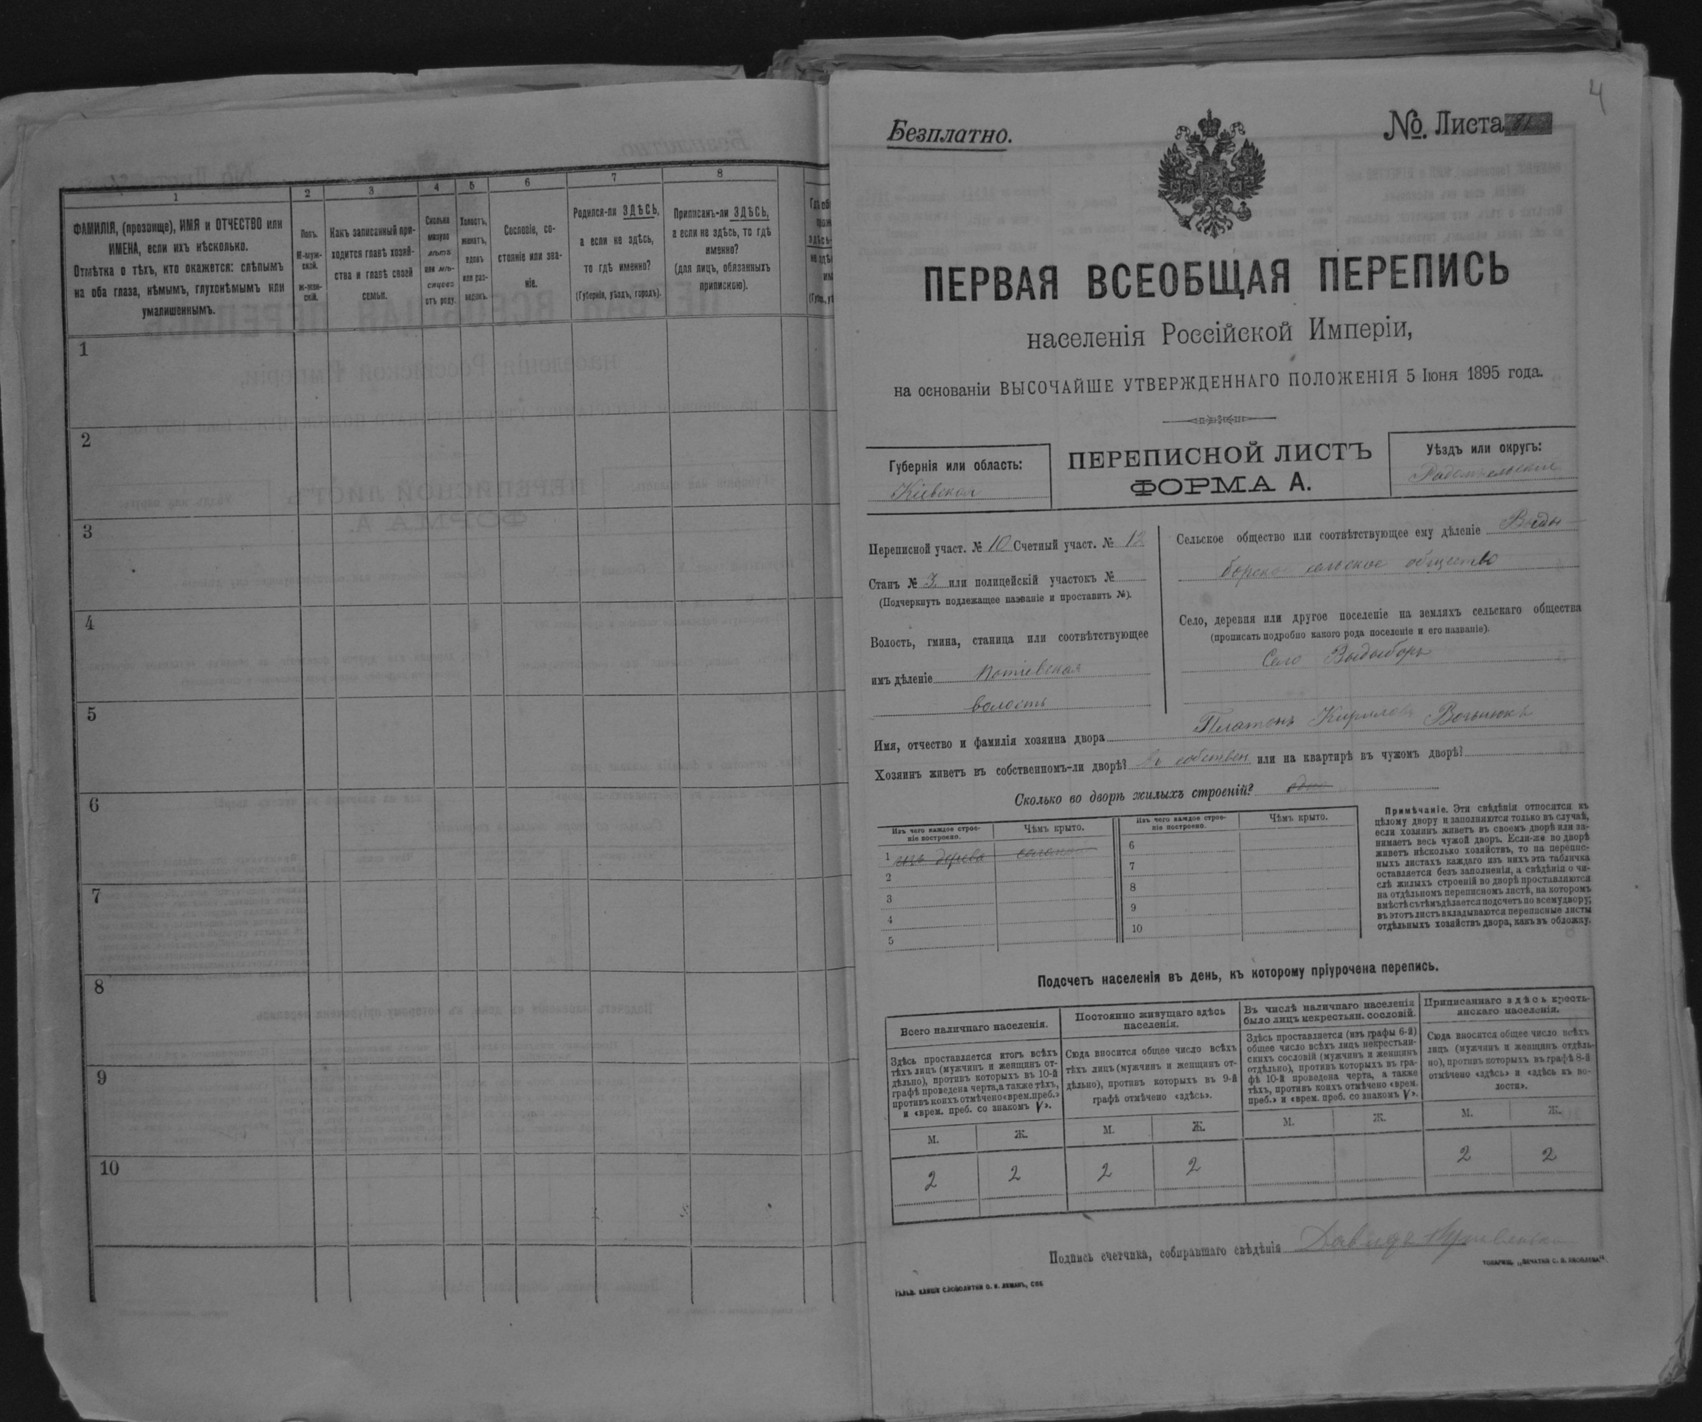 1
2
3
4
5
6
7
8
ФАМИЛІЯ, (прозвище), ИМЯ и ОТЧЕСТВО или
ИМЕНА, если ихъ нѣсколько.
Отмѣтка о тѣхъ, кто окажется: слѣпымъ
на оба глаза, нѣмымъ, глухонѣмымъ или
умалишеннымъ.
Полъ.
М-муж-
ской.
Ж-жен-
скій.
Какъ записанный при-
ходится главѣ хозяй-
ства и главѣ своей
семьи.
Сколько
минуло
лѣтъ
или мѣ-
сяцевъ
отъ роду.
Холостъ,
женатъ,
вдовъ
или раз-
веденъ.
Сословіе, со-
стояніе или зва-
ніе.
Родился-ли ЗДѢСЬ,
а если не здѣсь,
то гдѣ именно?
(Губернія, уѣздъ, городъ).
Приписанъ-ли ЗДѢСЬ,
а если не здѣсь, то гдѣ
именно?
(для лицъ, обязанныхъ
припискою).
1
2
3
4
5
6
7
8
9
10
4
Безплатно.
№. Листа
ПЕРВАЯ ВСЕОБЩАЯ ПЕРЕПИСЬ
населенія Россійской Имперіи,
на основаніи ВЫСОЧАЙШЕ УТВЕРЖДЕННАГО ПОЛОЖЕНІЯ 5 Іюня 1895 года.
Губернія или область:
Кіевская
ПЕРЕПИСНОЙ ЛИСТЪ
ФОРМА А.
Уѣздъ или округъ:
Радомысльскій
Переписной участ. № 10 Счетный участ. № 12
Станъ № 3 или полицейскій участокъ №
(Подчеркнуть подлежащее названіе и проставить №).
Волость, гмина, станица или соотвѣтствующее
имъ дѣленіе Потіевская
волость
Сельское общество или соотвѣтствующее ему дѣленіе Выды-
борское сельское общество
Село, деревня или другое поселеніе на земляхъ сельскаго общества
(прописать подробно какого рода поселеніе и его названіе).
Село Выдыборъ
Имя, отчество и фамилія хозяина двора Платонъ Кирилловъ
Хозяинъ живетъ въ собственномъ-ли дворѣ? въ собствен или на квартирѣ въ чужомъ дворѣ?
Сколько во дворѣ жилыхъ строеній? одно
Изъ чего каждое строе-
ніе построено.
Чѣмъ крыто.
Изъ чего каждое строе-
ніе построено.
Чѣмъ крыто.
1 изъ дерева соломой
2
3
4
5
6
7
8
9
10
Примѣчаніе. Эти свѣдѣнія относятся къ
цѣлому двору и заполняются только въ случаѣ,
если хозяинъ живетъ въ своемъ дворѣ или за-
нимаетъ весь чужой дворъ. Если-же во дворѣ
живетъ нѣсколько хозяйствъ, то на перепис-
ныхъ листахъ каждаго изъ нихъ эта табличка
оставляется безъ заполненія, а свѣдѣнія о чи-
слѣ жилыхъ строеній во дворѣ проставляются
на отдѣльномъ переписномъ листѣ, на которомъ
вмѣстѣ съ тѣмъ дѣлается подсчетъ по всему двору;
въ этотъ листъ вкладываются переписные листы
отдѣльныхъ хозяйствъ двора, какъ въ обложку.
Подсчетъ населенія въ день, къ которому пріурочена перепись.
Всего наличнаго населенія.
Здѣсь проставляется итогъ всѣхъ
тѣхъ лицъ (мужчинъ и женщинъ от-
дѣльно), противъ которыхъ въ 10-й
графѣ проведена черта, а также тѣхъ,
противъ коихъ отмѣчено «врем. преб.»
и «врем. преб. со знакомъ V».
Постоянно живущаго здѣсь
населенія.
Сюда вносится общее число всѣхъ
тѣхъ лицъ (мужчинъ и женщинъ от-
дѣльно), противъ которыхъ въ 9-й
графѣ отмѣчено «здѣсь».
Въ числѣ наличнаго населенія
было лицъ некрестьян. сословій.
Здѣсь проставляется (изъ графы 6-й)
общее число всѣхъ лицъ некрестьян-
скихъ сословій (мужчинъ и женщинъ
отдѣльно), противъ которыхъ въ гра-
фѣ 10-й проведена черта, а также
тѣхъ, противъ коихъ отмѣчено «врем.
преб.» и «врем. преб. со знакомъ V».
Приписаннаго здѣсь кресть-
янскаго населенія.
Сюда вносится общее число всѣхъ
лицъ (мужчинъ и женщинъ отдѣль-
но), противъ которыхъ въ графѣ 8-й
отмѣчено «здѣсь» и «здѣсь въ во-
лости».
М. Ж. М. Ж. М. Ж. М. Ж.
2 2 2 2 2 2
Подпись счетчика, собиравшаго свѣдѣнія Давидъ
ГАЛЬВ. КЛИШЕ СЛОВОЛИТНИ О. И. ЛЕМАНЪ, СПБ
ТОВАРИЩ. „ПЕЧАТНЯ С. П. ЯКОВЛЕВА“.